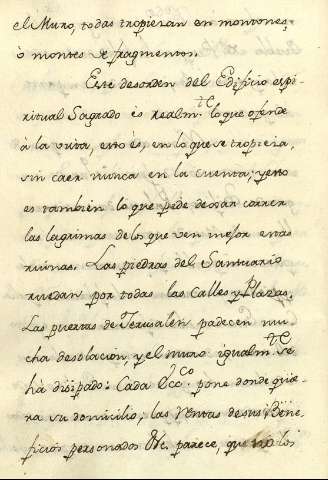 el Muro, todas tropiezan en montones,
ò montes de fragmentos.
Este desorden del Edificio espi-
ritual Sagrado és realm.te lo que ofende
à la vista, esto és, en lo que se tropieza,
sin caer nunca en la cuenta; y esto
es tambien lo que pede dexar correr
las lagrimas delos que ven mejor estas
ruinas. Las piedras del Santuario
ruedan por todas las Calles y Plazas.
Las puertas de Jerusalèn padecen mu-
cha desolacion, y el muro igualm.te se
ha disipado. Cada Ecc.co pone donde quie-
ra su domicilio; las rentas desus Bene-
ficios personados &c. parece, que los